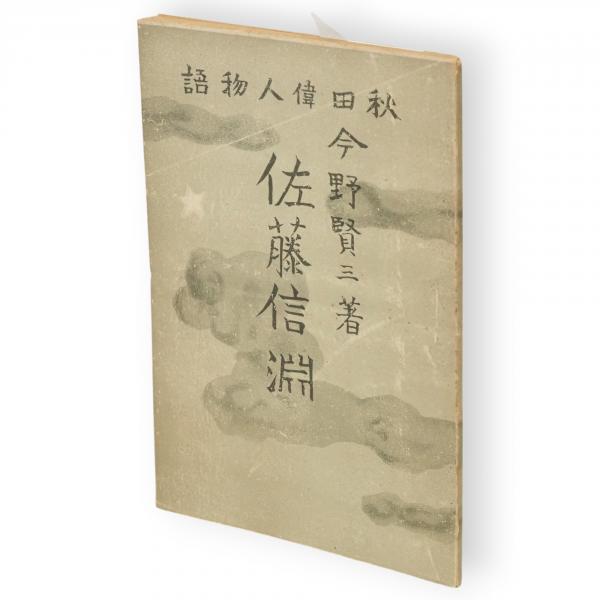 秋田偉人物語
今野賢三著
佐藤信淵